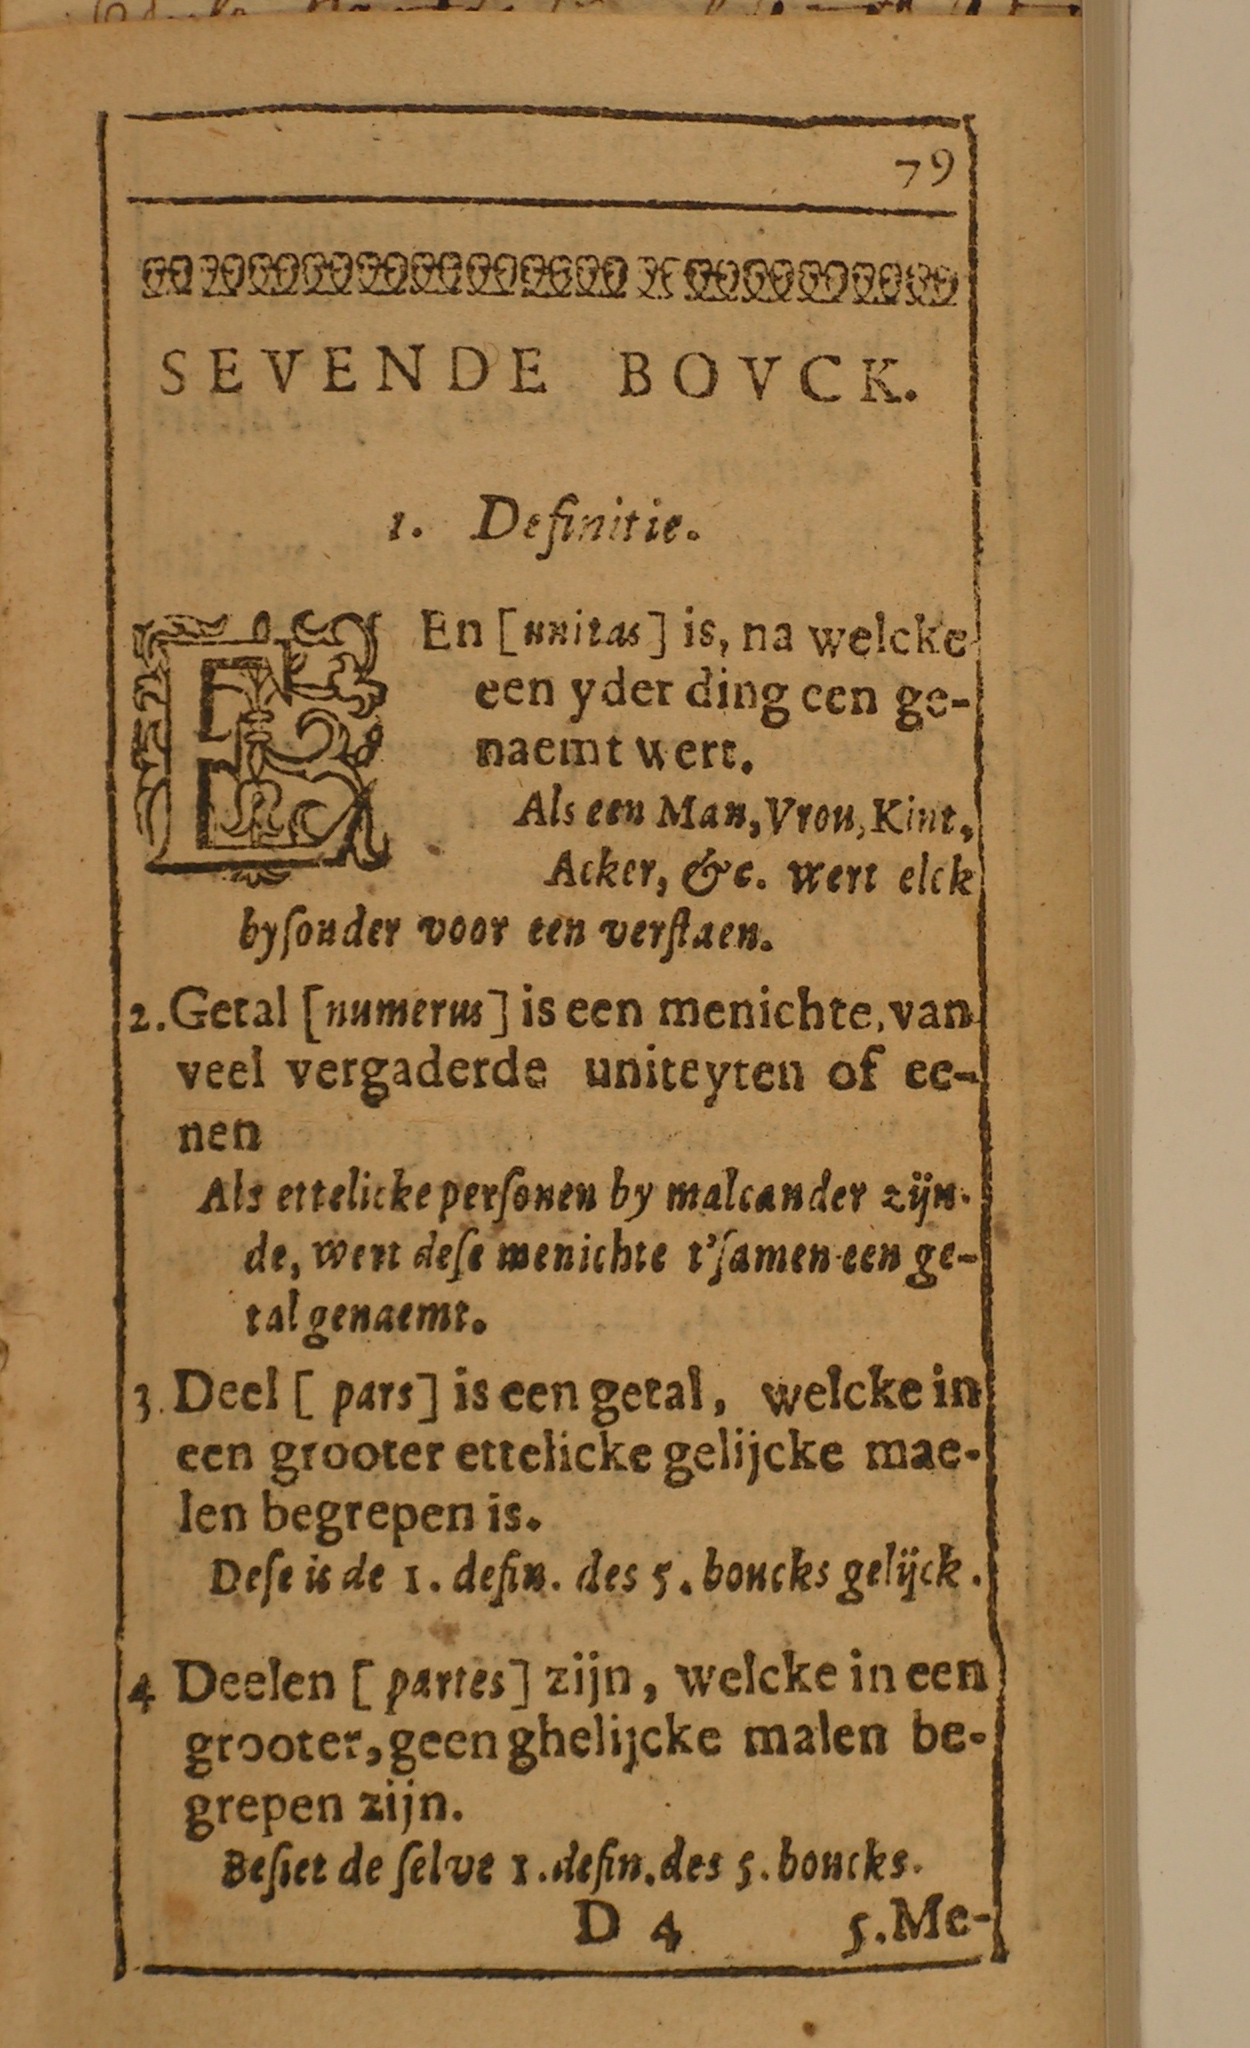 79
SEVENDE BOVCK.
1. Definitie.
EEn [unitas] is, na welcke
een yder ding een ge-
naemt wert.
Als een Man, Vrou, Kint,
Acker, &c. wert elck
byſonder voor een verſtaen.
2. Getal [numerus] is een menichte, van
veel vergaderde uniteyten of ee-
nen
Als ettelicke perſonen by malcander zijn-
de, wert deſe menichte t'ſamen een ge-
tal genaemt.
3. Deel [pars] is een getal, welcke in
een grooter ettelicke gelijcke mae-
len begrepen is.
Deſe is de 1. defin. des 5. boucks gelijck.
4 Deelen [partes] zijn, welcke in een
grooter, geen ghelijcke malen be-
grepen zijn.
Beſiet de ſelve 1. defin. des 5. boucks.
D 4 5. Me-